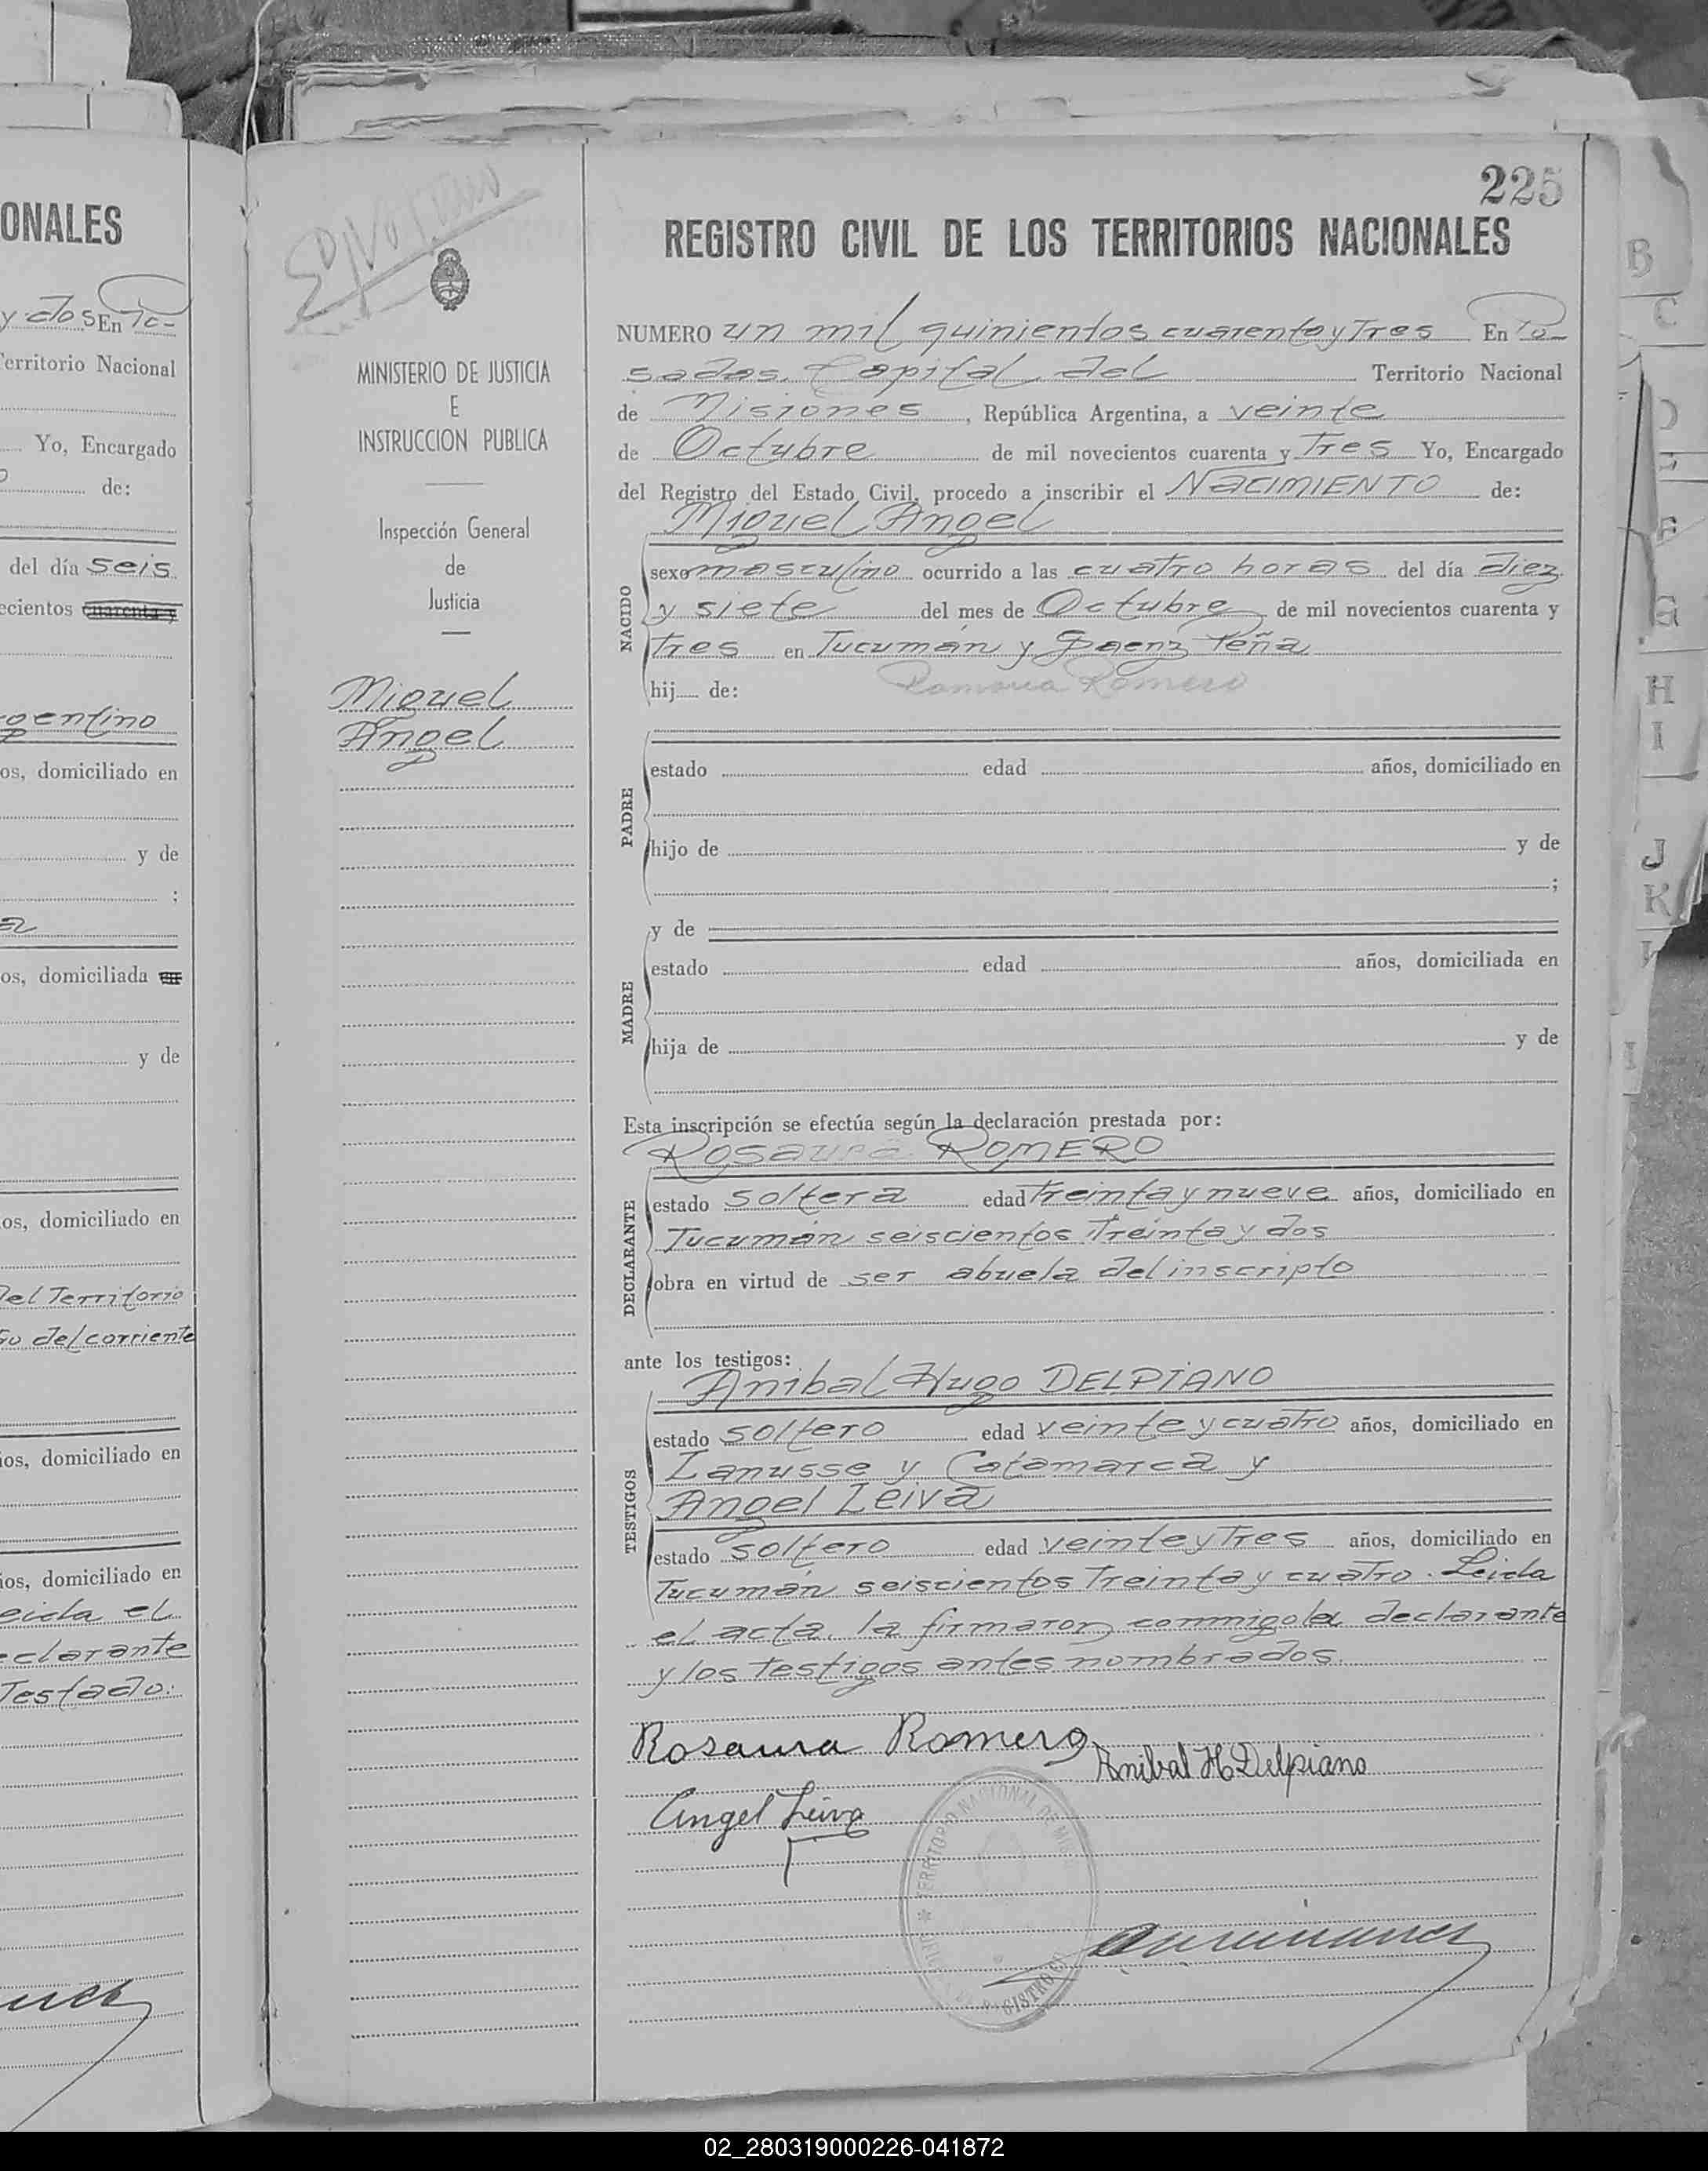 ONALES
y dos En Po-
Territorio Nacional
Yo, Encargado
de:
del día seis
ecientos cuarenta y
gentino
os, domiciliado en
y de
;
os, domiciliada en
y de
os, domiciliado en
Del Territorio
del corriente
ios, domiciliado en
ios, domiciliado en
eida el
eclarante
Testado:
MINISTERIO DE JUSTICIA
E
INSTRUCCION PUBLICA
Inspección General
de
Justicia
Miguel
Angel
225
REGISTRO CIVIL DE LOS TERRITORIOS NACIONALES
NUMERO un mil quinientos cuarenta y Tres En Po-
sadas, Capital del Territorio Nacional
de Misiones, República Argentina, a veinte
de Octubre de mil novecientos cuarenta y Tres Yo, Encargado
del Registro del Estado Civil, procedo a inscribir el NACIMIENTO de:
Miguel Angel
NACIDO
sexo masculino ocurrido a las cuatro horas del día diez
y siete del mes de Octubre de mil novecientos cuarenta y
tres en Tucumán y Saenz Peña
hij de: Romero
PADRE
estado edad años, domiciliado en
hijo de y de
;
MADRE
y de
estado edad años, domiciliada en
hija de y de
Esta inscripción se efectúa según la declaración prestada por:
Rosaura ROMERO
DECLARANTE
estado soltera edad Treinta y nueve años, domiciliado en
Tucumán seiscientos Treinta y dos
obra en virtud de ser abuela del inscripto
ante los testigos:
Anibal Hugo DELPIANO
TESTIGOS
estado soltero edad veinte y cuatro años, domiciliado en
Lanusse y Catamarca y
Angel Leiva
estado soltero edad veinte y Tres años, domiciliado en
Tucumán seiscientos Treinta y cuatro. Leida
el acta, la firmaron conmigo la declarante
y los Testigos antes nombrados.
Rosaura Romero
Anibal H Delpiano
Angel Leiva
TERRITORIO NACIONAL DE
B
C
D
E
F
G
H
I
J
K
02_280319000226-041872